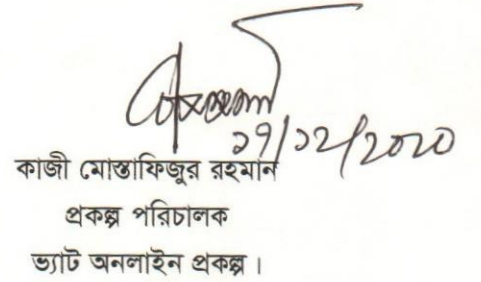 ১৭/১২/২০২০
কাজী মোস্তাফিজুর রহমান
প্রকল্প পরিচালক
ভ্যাট অনলাইন প্রকল্প।